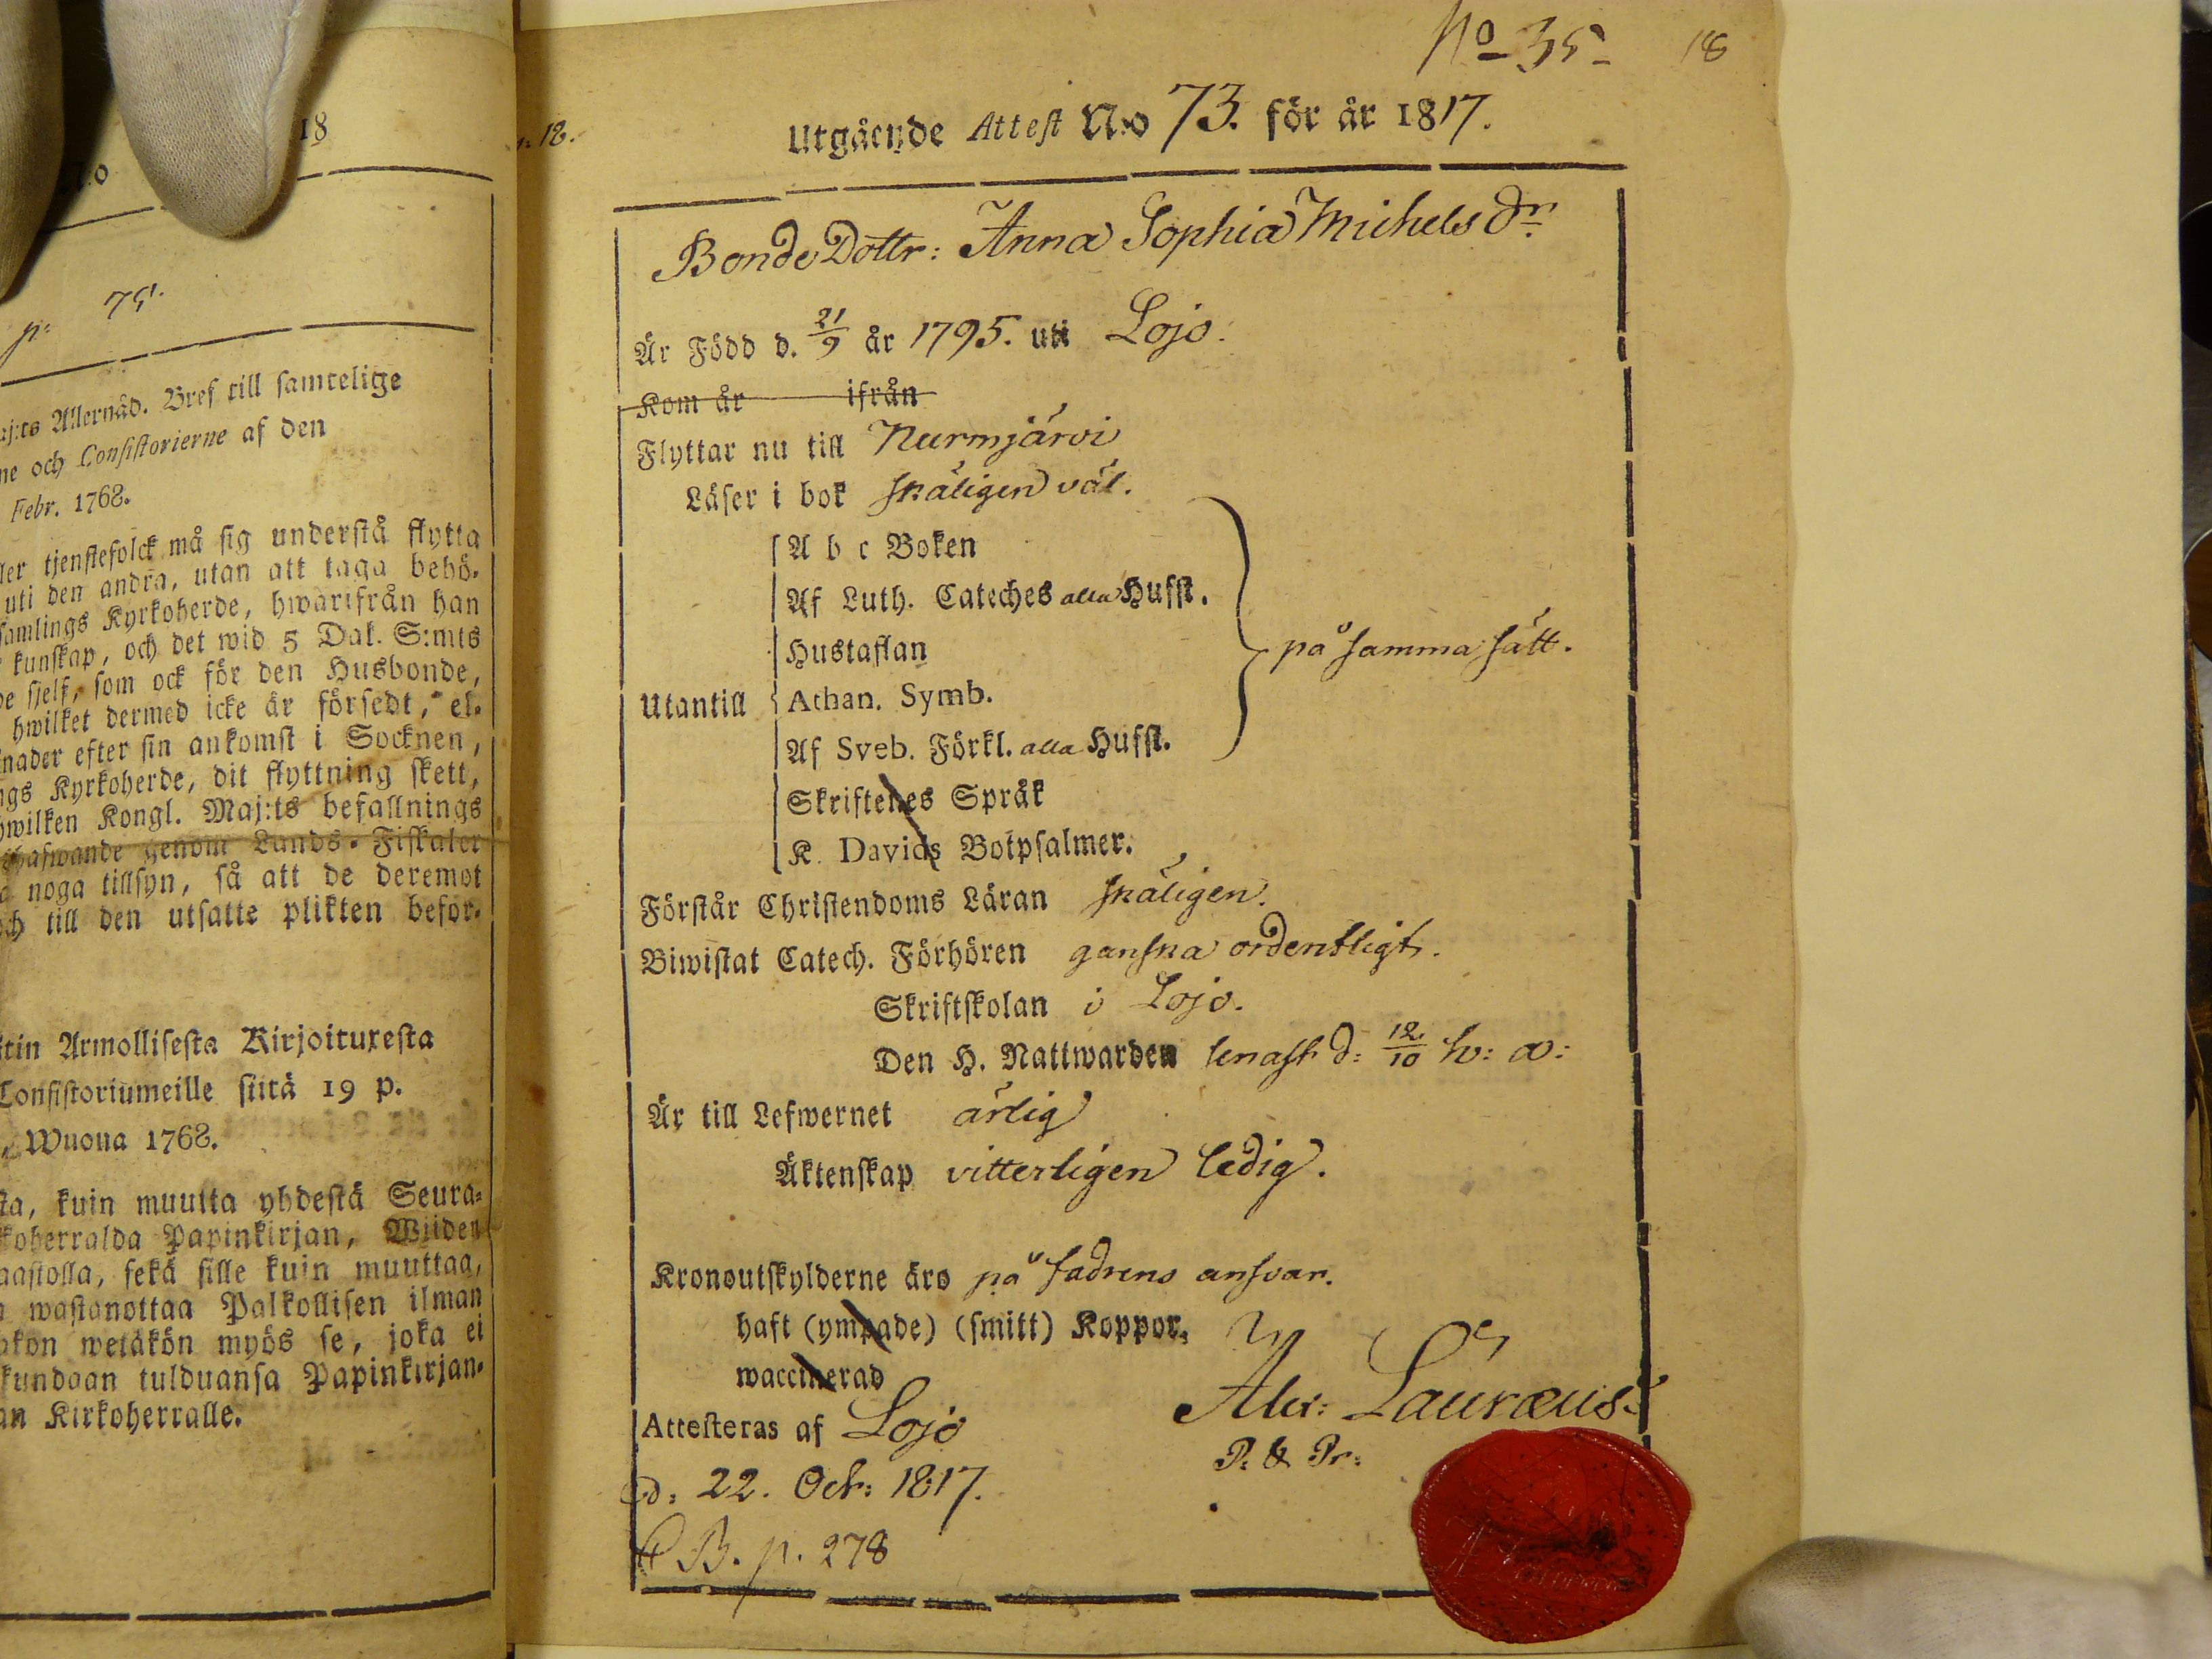 18
N:o
p: 75.
aj:ts Allernåd. Bref till samtelige
ne och Consistorierne af den
Febr. 1768.
ller tjenstefolck må sig understå flytta
uti den andra, utan att taga behö-
samlings Kyrkoherde, hwarifrån han
kunskap, och det wid 5 Dal. S:mts
de sjelf, som ock för den Husbonde,
hwilket dermed icke är försedt, el-
nader efter sin ankomst i Socknen,
ngs Kyrkoherde, dit flyttning skett,
hwilken Kongl. Maj:ts befallnings
hafwande genom Lands-Fiskaler
a noga tillsyn, så att de deremot
och till den utsatte plikten befor-
tin Armollisesta Kirjoituxesta
Consistoriumeille siitä 19 p.
Wuona 1768.
sta, kuin muutta yhdestä Seura-
koherralda Papinkirjan, Wiiden
aastolla, sekä sille kuin muuttaa,
wastanottaa Palkollisen ilman
akon wetäkön myös se, joka ei
kundaan tulduansa Papinkirjan-
an Kirkoherralle.
No 35 18
: 18.
Utgående Attest N:o 73. för år 1817.
Bonde Dottr: Anna Sophia Michels dr
Är Född d. 21/9 år 1795. uti Lojo.
Kom år ifrån
Flyttar nu till Nurmjärvi
Läser i bok skäligen väl.
A b c Boken
Af Luth. Cateches alla Hufst.
Hustaflan
på samma sätt.
Utantill Athan. Symb.
Af Sveb. Förkl. alla Hufst.
Skriftenes Språk
K. Davids Botpsalmer.
Förstår Christendoms Läran skäligen.
Biwistat Catech. Förhören ganska ordentligt.
Skriftskolan i Lojo.
Den H. Nattwarden senast d: 12/10 h: a:
Är till Lefwernet ärlig
Äktenskap vitterligen ledig.
Kronoutskylderne äro på fadrens ansvar.
haft (ympade) (smitt) Koppor,
waccinerad
Attesteras af Lojo Alex: Lauræus.
d: 22. Octr: 1817. P. & Pr:
B. p. 278